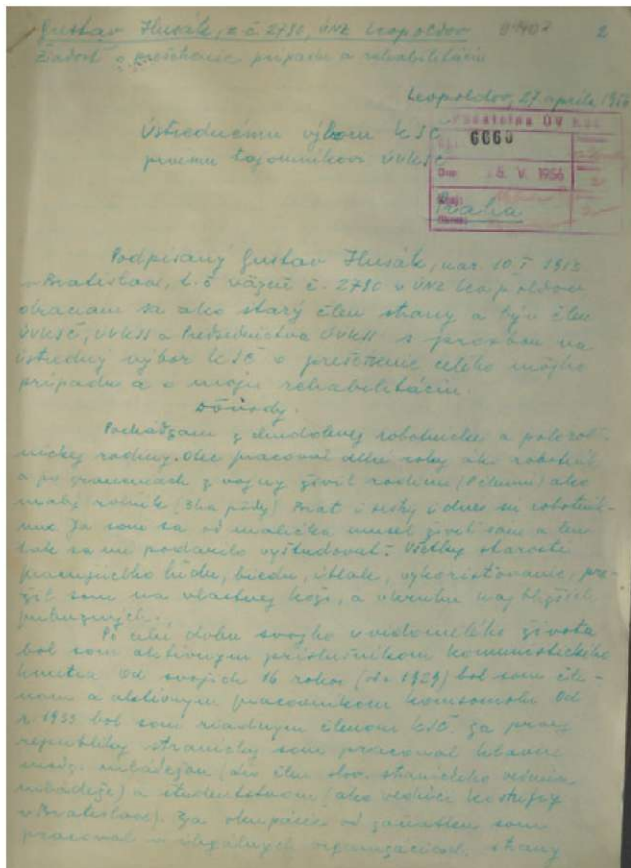 Gustav Husák, z č 2710, ÚNZ Leopoldov
2
Žiadosť o prešetrenie prípadu a rehabilitáciu
Leopoldov, 27 apríla 1956
Ústrednému výboru KSČ
prvemu tajomníkovi ÚVKSČ
ÚV KSČ
6660
5. V. 1956
Praha
Podpísaný Gustav Husák, nar. 10. I 1913
v Bratislave, t. č väzeň č. 2710 v ÚNZ Leopoldov
obraciam sa ako starý člen strany a býv člen
ÚVKSČ, ÚVKSS a Predsedníctva ÚVKSS s prosbou na
ústredný výbor KSČ o prešetrenie celého môjho
prípadu a o moju rehabilitáciu.
Dôvody.
Pochádzam z chudobnej robotnícke a polorot-
níckej rodiny. Otec pracoval dlhé roky ako robotník
a po z vojny živil rodinu ako
malý roľník (3ha pôdy) Brat i sestry i dnes sú robotník-
mi. Ja som sa od malička musel živiť sám a len
tak sa mi podarilo vyštudovať. Všetky starosti
pracujúceho ľudu, biedu, útlak, vykorisťovanie, pre-
žil som na vlastnej koži, a okruhu najbližších
príbuzných.
Po celú dobu svojho uvedomelého života
bol som aktívnym príslušníkom komunistického
hnutia Od svojich 16 rokov (1929) bol som čle-
nom a aktívnym pracovníkom komsomolu Od
r 1933 bol som riadnym členom KSČ. Za prvej
republiky stranícky som pracoval hlavne
medzi mládežou (ako člen slov. straníckeho vedenia
mládeže) a študentstvom (ako vedúci kostufry
v Bratislave). Za okupácie od začiatku som
pracoval v ilegálnych organizáciach strany